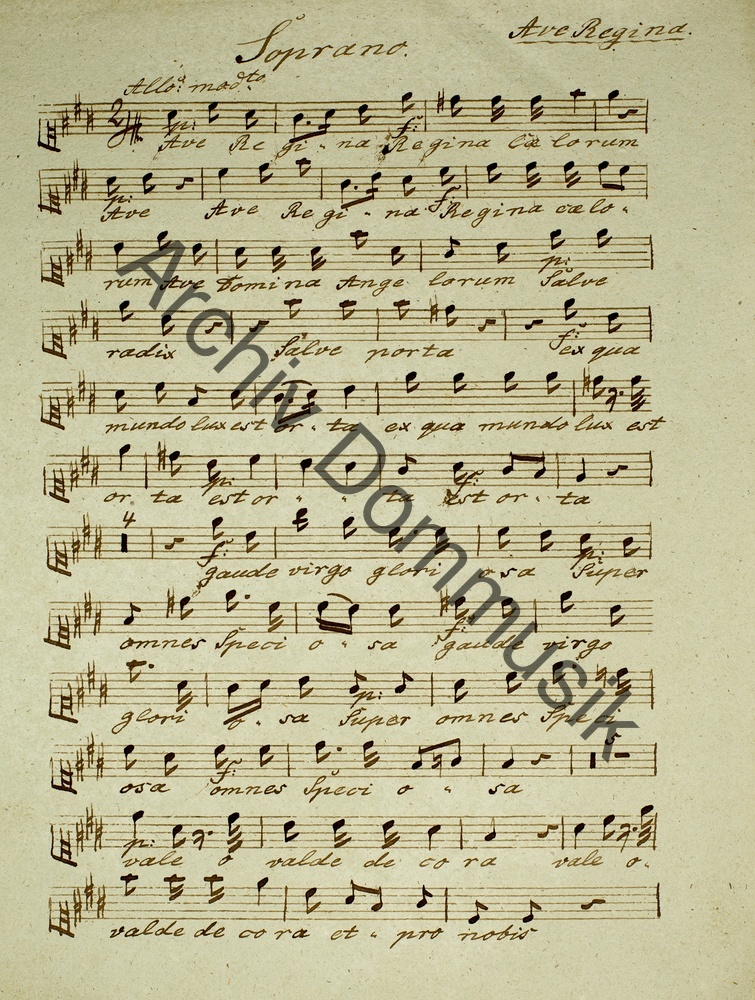 Ave Regina.
Soprano.
Allo: modto
p: f:
Ave Regi - na Regina cælorum
p: f:
Ave Ave Regi - na Regina cælo -
p:
rum Ave Domina Angelorum Salve
f:
radix Salve porta ex qua
mundo lux est or - ta ex qua mundo lux est
p: f:
or ta est or - - ta est or - ta
4
f: p:
gaude virgo glori osa Super
f:
omnes Speci o - sa gaude virgo
p:
glori o - sa Super omnes Speci
5
f:
osa omnes Speci o - sa
p:
vale o valde decora vale o -
valde decora et - pro nobis
Archiv Dommusik